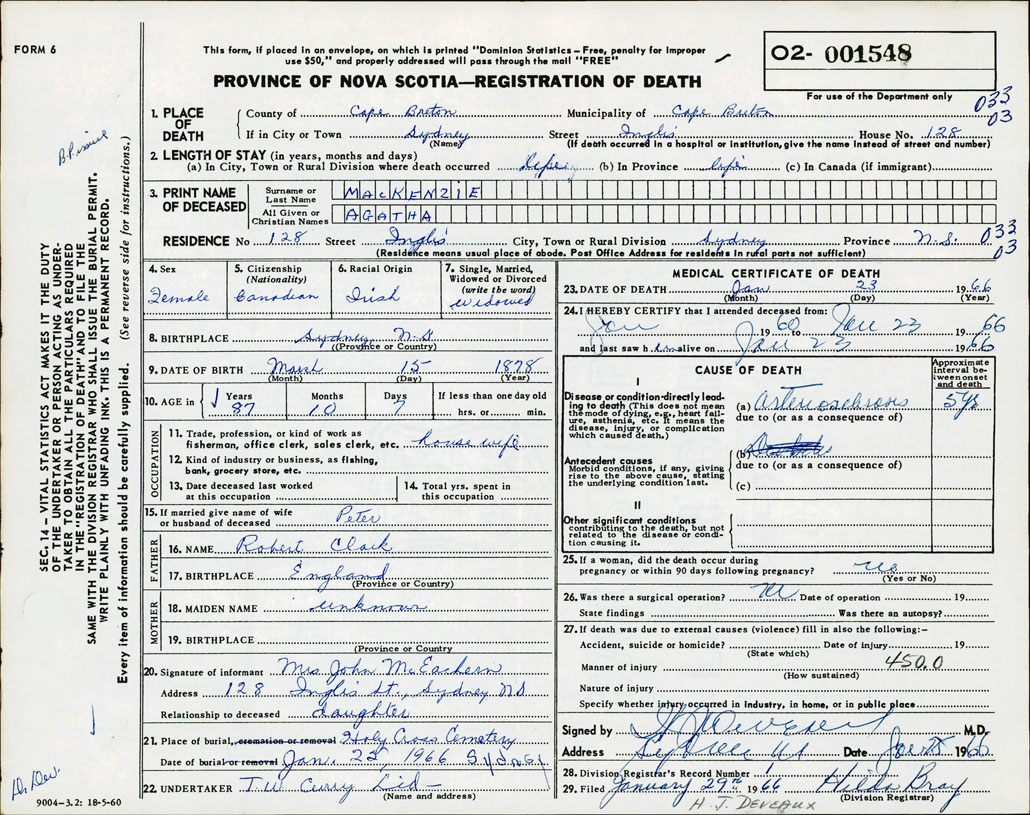 FORM 6
This form, if placed in an envelope, on which is printed "Dominion Statistics – Free, penalty for improper
use $50," and properly addressed will pass through the mail "FREE"
PROVINCE OF NOVA SCOTIA—REGISTRATION OF DEATH
02- 001548
For use of the Department only
033
03
1. PLACE OF DEATH
County of Cape Breton Municipality of Cape Breton
If in City or Town Sydney Street Inglis House No. 128
(Name) (If death occurred in a hospital or institution, give the name instead of street and number)
2. LENGTH OF STAY (in years, months and days)
(a) In City, Town or Rural Division where death occurred life (b) In Province life (c) In Canada (if immigrant)
3. PRINT NAME OF DECEASED
Surname or Last Name MACKENZIE
All Given or Christian Names AGATHA
RESIDENCE No 128 Street Inglis City, Town or Rural Division Sydney Province N.S. 033
03
(Residence means usual place of abode. Post Office Address for residents in rural parts not sufficient)
4. Sex Female
5. Citizenship (Nationality) Canadian
6. Racial Origin Irish
7. Single, Married, Widowed or Divorced (write the word) widowed
8. BIRTHPLACE Sydney N.S
(Province or Country)
9. DATE OF BIRTH March 15 1878
(Month) (Day) (Year)
10. AGE in Years 87 Months 10 Days 7 If less than one day old hrs. or min.
OCCUPATION
11. Trade, profession, or kind of work as fisherman, office clerk, sales clerk, etc. house wife
12. Kind of industry or business, as fishing, bank, grocery store, etc.
13. Date deceased last worked at this occupation
14. Total yrs. spent in this occupation
15. If married give name of wife or husband of deceased Peter
FATHER
16. NAME Robert Clark
17. BIRTHPLACE England
(Province or Country)
MOTHER
18. MAIDEN NAME unknown
19. BIRTHPLACE
(Province or Country)
20. Signature of informant Mrs John McEachern
Address 128 Inglis St., Sydney NS
Relationship to deceased daughter
21. Place of burial, cremation or removal Holy Cross Cemetery
Date of burial or removal Jan. 25, 1966 Sydney
22. UNDERTAKER T.W. Curry Ltd
(Name and address)
MEDICAL CERTIFICATE OF DEATH
23. DATE OF DEATH Jan 23 1966
(Month) (Day) (Year)
24. I HEREBY CERTIFY that I attended deceased from:
Jan 1960 to Jan 23 1966
and last saw her alive on Jan 23 1966
CAUSE OF DEATH
Approximate interval between onset and death
I
Disease or condition directly leading to death (This does not mean the mode of dying, e.g., heart failure, asthenia, etc. It means the disease, injury, or complication which caused death.)
(a) Arteriosclerosis 5 yrs
due to (or as a consequence of)
Antecedent causes
Morbid conditions, if any, giving rise to the above cause, stating the underlying condition last.
(b)
due to (or as a consequence of)
(c)
II
Other significant conditions
contributing to the death, but not related to the disease or condition causing it.
25. If a woman, did the death occur during pregnancy or within 90 days following pregnancy? no
(Yes or No)
26. Was there a surgical operation? no Date of operation 19
State findings Was there an autopsy?
27. If death was due to external causes (violence) fill in also the following:–
Accident, suicide or homicide? Date of injury 19
(State which)
Manner of injury 450.0
(How sustained)
Nature of injury
Specify whether injury occurred in Industry, in home, or in public place
Signed by M.D.
Address Sydney NS Date 1966
28. Division Registrar's Record Number 1
29. Filed January 29th 1966 Hilda Bray
(Division Registrar)
H. J. DEVEAUX
SEC. 14 – VITAL STATISTICS ACT MAKES IT THE DUTY
OF THE UNDERTAKER OR PERSON ACTING AS UNDER-
TAKER TO OBTAIN ALL THE PARTICULARS REQUIRED
IN THE "REGISTRATION OF DEATH" AND TO FILE THE
SAME WITH THE DIVISION REGISTRAR WHO SHALL ISSUE THE BURIAL PERMIT.
WRITE PLAINLY WITH UNFADING INK. THIS IS A PERMANENT RECORD.
Every item of information should be carefully supplied. (See reverse side for instructions.)
Dr. Dev.
9004–3.2: 18-5-60